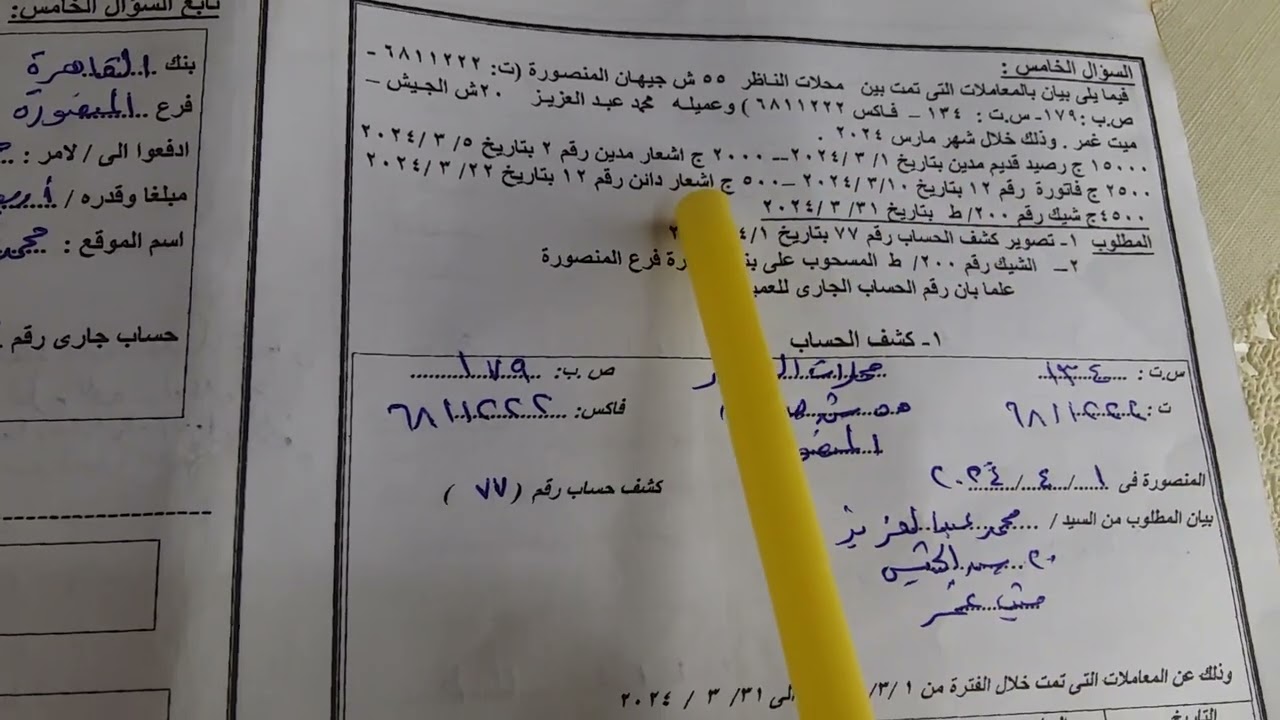 السؤال الخامس :
فيما يلى بيان بالمعاملات التى تمت بين محلات الناظر ٥٥ ش جيهان المنصورة (ت: ٦٨١١٢٢٢ -
ص.ب : ١٧٩- س.ت : ١٣٤ - فاكس ٦٨١١٢٢٢ ) وعميله محمد عبد العزيز ٢٠ش الجيش -
ميت غمر . وذلك خلال شهر مارس ٢٠٢٤ .
١٥٠٠٠ ج رصيد قديم مدين بتاريخ ١/ ٣ /٢٠٢٤ -- ٢٠٠٠ ج اشعار مدين رقم ٢ بتاريخ ٥/ ٣ /٢٠٢٤
٢٥٠٠ ج فاتورة رقم ١٢ بتاريخ ٣/١٠ /٢٠٢٤ – ٥٠٠ ج اشعار دائن رقم ١٢ بتاريخ ٢٢/ ٣ /٢٠٢٤
٤٥٠٠ج شيك رقم ٢٠٠/ ط بتاريخ ٣١/ ٣ /٢٠٢٤
المطلوب ١- تصوير كشف الحساب رقم ٧٧ بتاريخ ٤/١
٢- الشيك رقم ٢٠٠/ ط المسحوب على فرع المنصورة
علما بان رقم الحساب الجارى
١- كشف الحساب
س.ت : ١٣٤ محلات ص.ب: ١٧٩
ت : ٦٨١١٢٢٢ ٥٥ ش فاكس: ٦٨١١٢٢٢
المنصورة فى ١ / ٤ / ٢٠٢٤
كشف حساب رقم ( ٧٧ )
بيان المطلوب من السيد / محمد عبد العزيز
٢٠ ش الجيش
ميت غمر
وذلك عن المعاملات التى تمت خلال الفترة من ١ /٣/ الى ٣١/ ٣ / ٢٠٢٤
التاريخ
تابع السؤال الخامس:
بنك القاهرة
فرع المنصورة
ادفعوا الى / لامر :
مبلغا وقدره /
اسم الموقع :
حساب جارى رقم